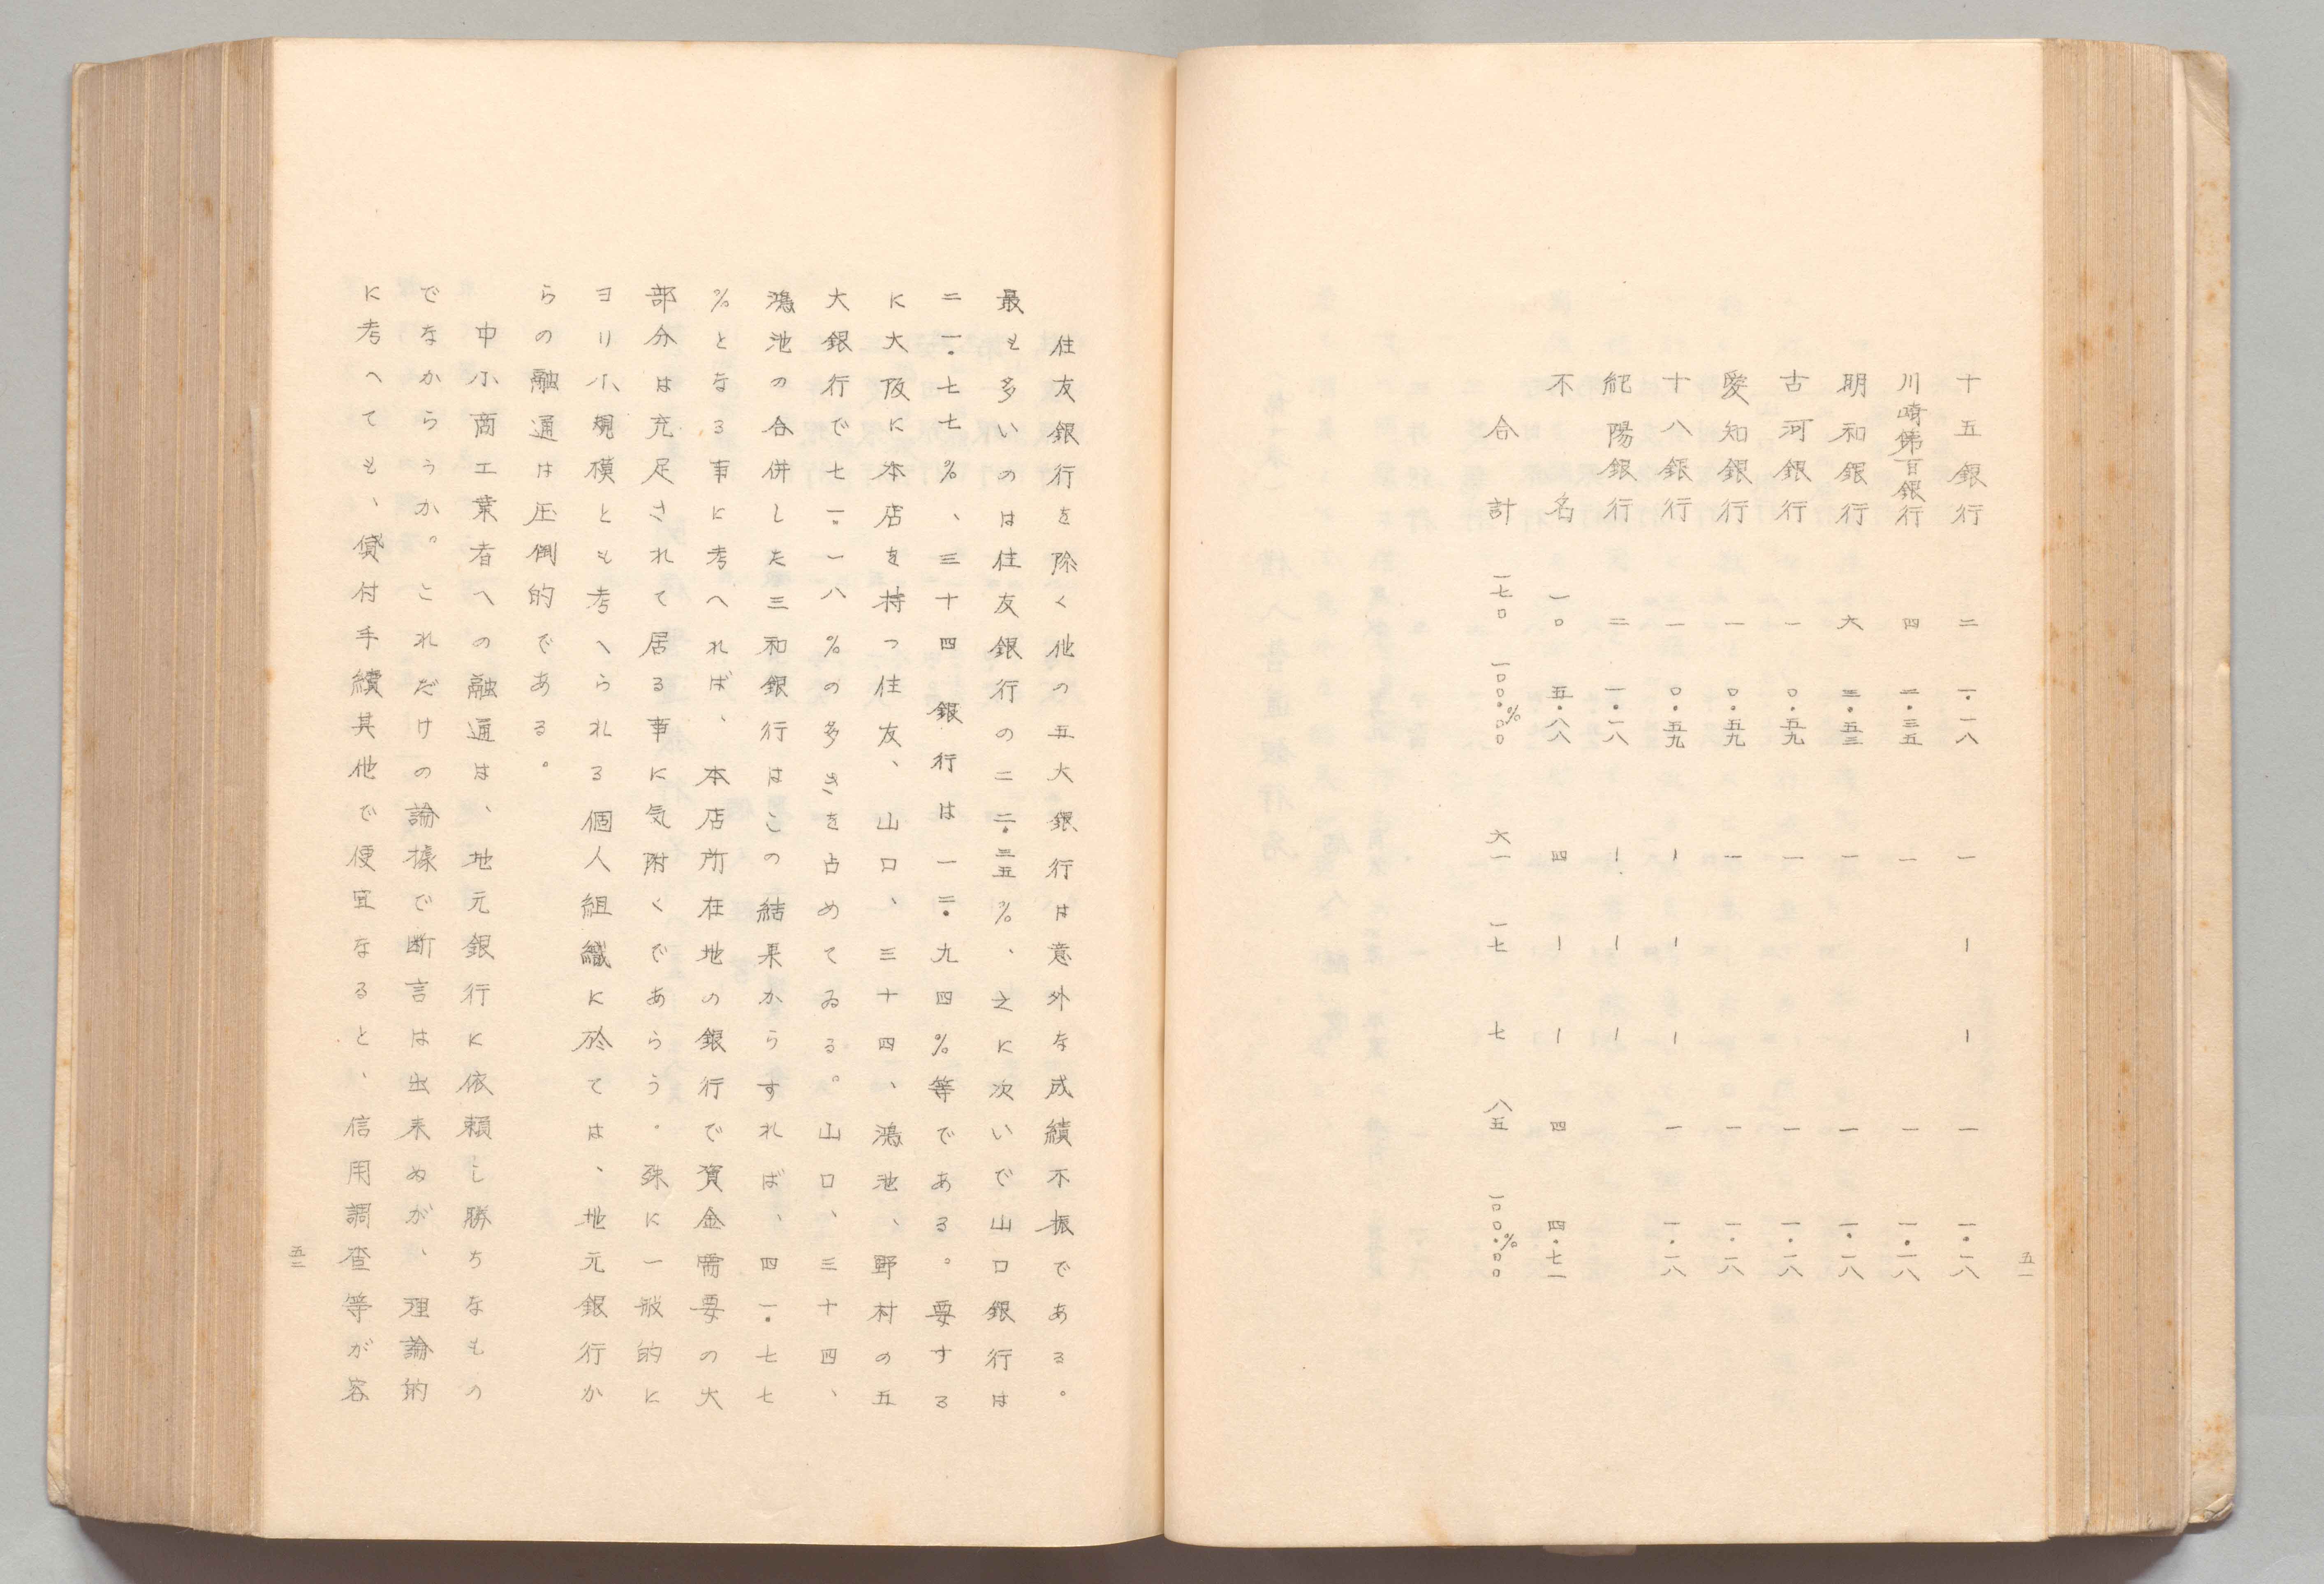 五一
十五銀行 二 一・一八 一 ー ー 一 一・一八
川崎第百銀行 四 二・三五 一 一 一・一八
明和銀行 六 三・五三 一 一 一・一八
古河銀行 一 〇・五九 一 一 一・一八
愛知銀行 一 〇・五九 一 一 一・一八
十八銀行 一 〇・五九 ー ー ー 一 一・一八
紀陽銀行 二 一・一八 ー ー ー
不名 一〇 五・八八 四 ー ー 四 四・七一
合計 一七〇 一〇〇・〇〇% 六一 一七 七 八五 一〇〇・〇〇%
住友銀行を除く他の五大銀行は意外な成績不振である。
最も多いのは住友銀行の二二・三五%、之に次いで山口銀行は
二一・七七%、三十四銀行は一二・九四%等である。要する
に大阪に本店を持つ住友、山口、三十四、鴻池、野村の五
大銀行で七一・一八%の多きを占めてゐる。山口、三十四、
鴻池の合併した三和銀行はこの結果からすれば、四一・七七
%となる事に考へれば、本店所在地の銀行で資金需要の大
部分は充足されて居る事に気附くであらう。殊に一般的に
ヨリ小規模とも考へられる個人組織に於ては、地元銀行か
らの融通は圧倒的である。
中小商工業者への融通は、地元銀行に依頼し勝ちなもの
でなからうか。これだけの論據で断言は出来ぬが、理論的
に考へても、貸付手續其他で便宜なると、信用調査等が容
五二